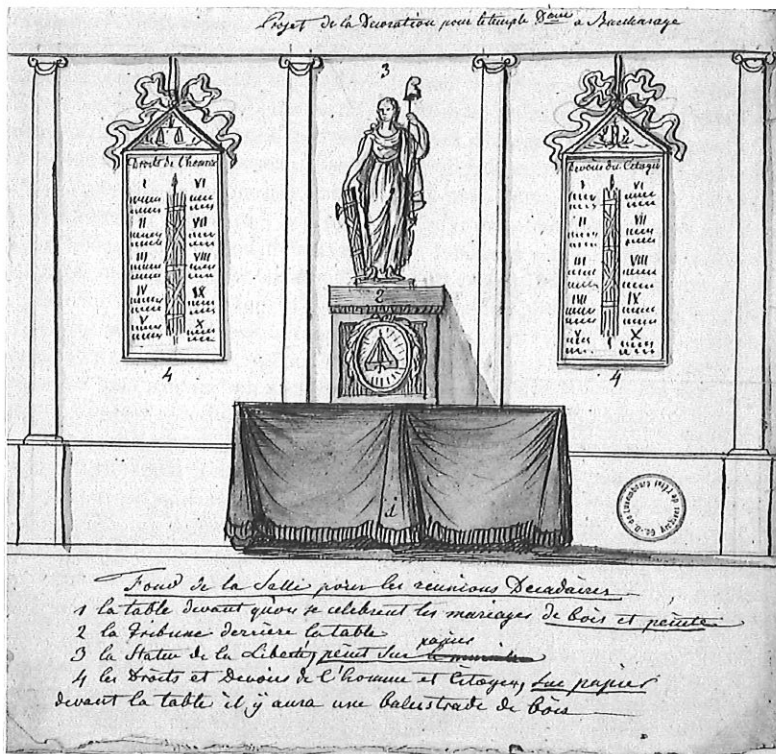 Projet de la Decoration pour le temple Décre a Bascharage
3
Droits de l'homme
I VI
II VII
III VIII
IV IX
V X
4
Devoirs du Citoyen
I VI
II VII
III VIII
IV IX
V X
4
2
1
Archives de l'Etat Gd. D. de Luxembourg
Fond de la Salle pour les reunions Decadaires
1 la table devant qu'on se celebrent les mariages de bois et peinte
2 la Tribune derriere la table
papier
3 la Statue de la Liberté, peint sur
4 les Droits et Devoirs de l'homme et Citoyen, sur papier
devant la table il ÿ aura une balustrade de bois